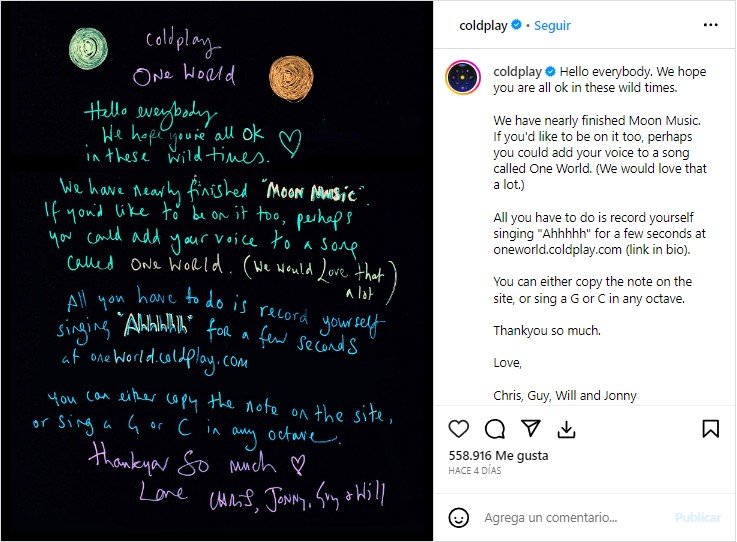 coldplay
ONE WORLD
Hello everybody
We hope you're all OK
in these wild times.
We have nearly finished "MOON MUSIC".
If you'd like to be on it too, perhaps
you could add your voice to a song
called ONE WORLD. (We would love that
a lot)
All you have to do is record yourself
singing "Ahhhhh" for a few seconds
at oneworld.coldplay.com
you can either copy the note on the site,
or sing a G or C in any octave.
thankyou so much
Love CHRIS, JONNY, Guy & Will
coldplay • Seguir
coldplay Hello everybody. We hope
you are all ok in these wild times.
We have nearly finished Moon Music.
If you'd like to be on it too, perhaps
you could add your voice to a song
called One World. (We would love that
a lot.)
All you have to do is record yourself
singing "Ahhhhh" for a few seconds at
oneworld.coldplay.com (link in bio).
You can either copy the note on the
site, or sing a G or C in any octave.
Thankyou so much.
Love,
Chris, Guy, Will and Jonny
558.916 Me gusta
HACE 4 DÍAS
Agrega un comentario... Publicar